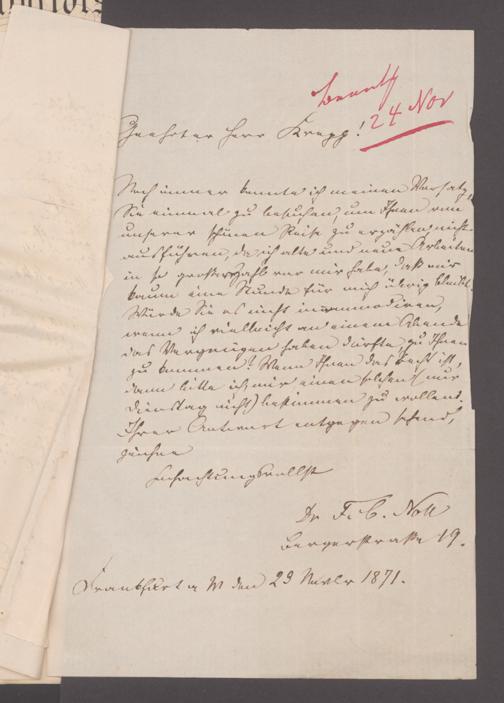 beantw
24 Nov
Geehrter Herr Kregg!
Noch immer konnte ich meinen Vorsatz,
Sie einmal zu besuchen, um Ihnen von
unserer schönen Reise zu erzählen, nicht
ausführen, da ich alte und neue Arbeiten
in so großer Zahl vor mir habe, daß mir
kaum eine Stunde für mich übrig bleibt.
Würde Sie es nicht incommodiren,
wenn ich vielleicht an einem Abende
das Vergnügen haben dürfte, zu Ihnen
zu kommen? Wenn Ihnen das Recht ist,
dann bitte ich mir einen solchen (nur
Dienstag nicht) bestimmen zu wollen.
Ihrer Antwort entgegen sehend,
zeichne
Hochachtungsvollst
Dr F. C. Noll
Bergerstraße 19.
Frankfurt a M den 23 Novbr 1871.